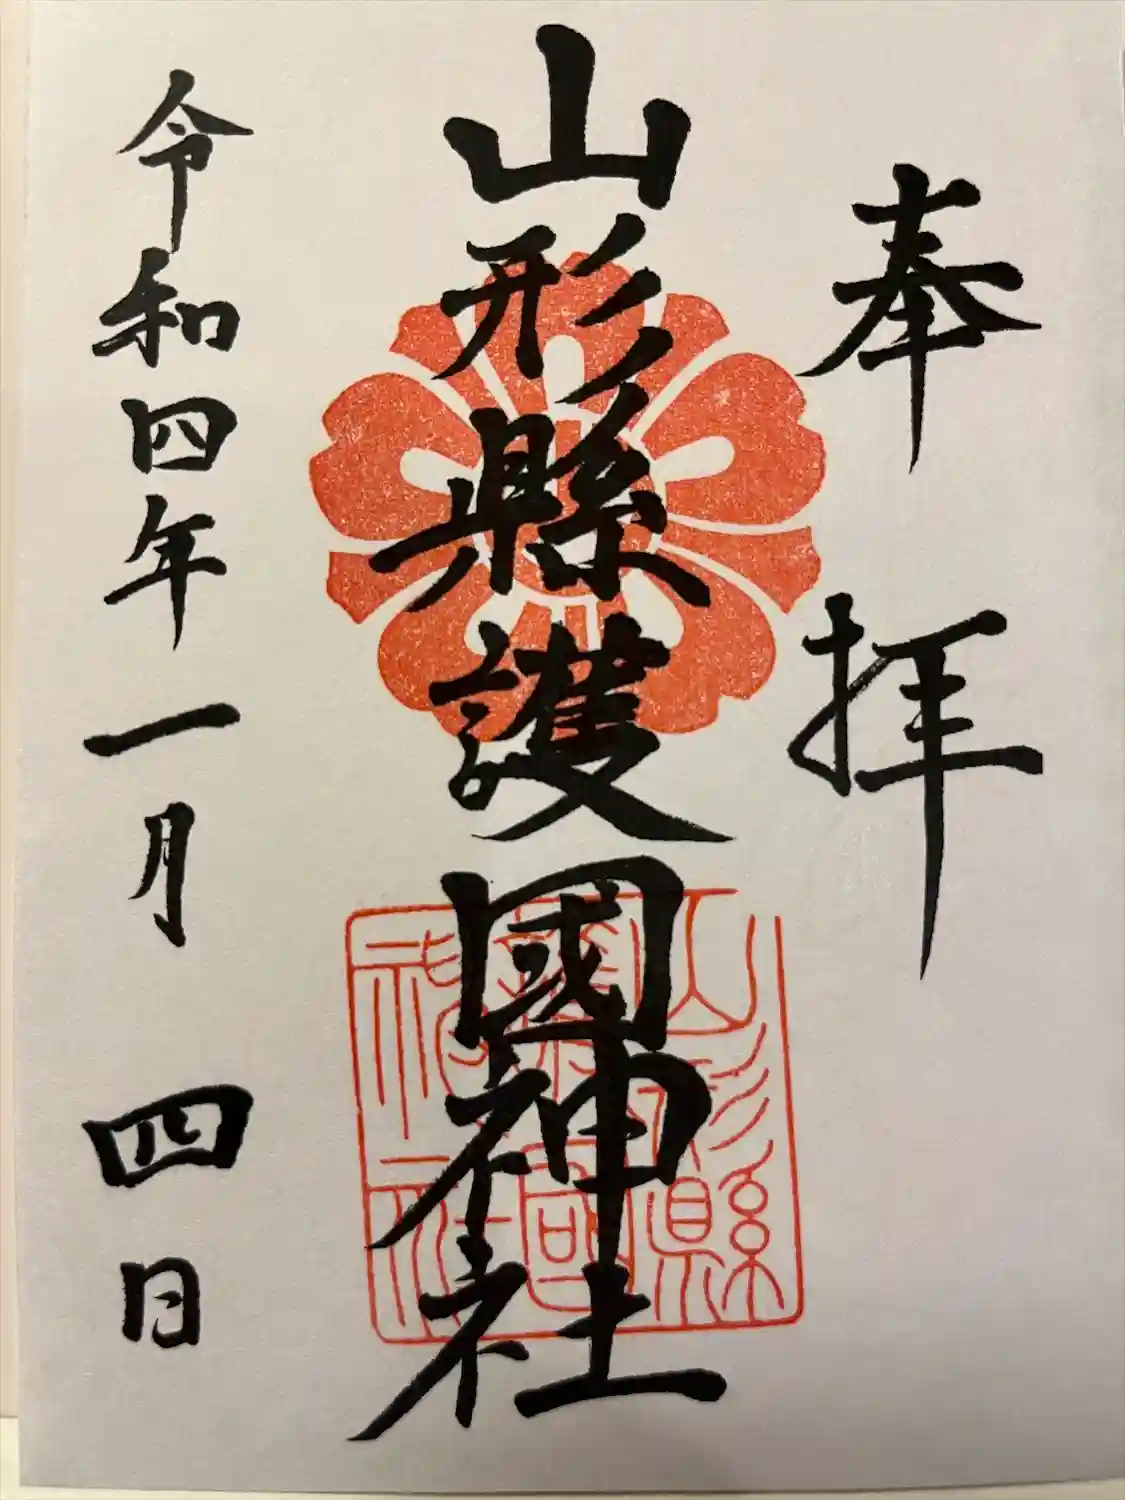 奉拝
山形縣護國神社
令和四年一月四日
山形縣
護國
神社